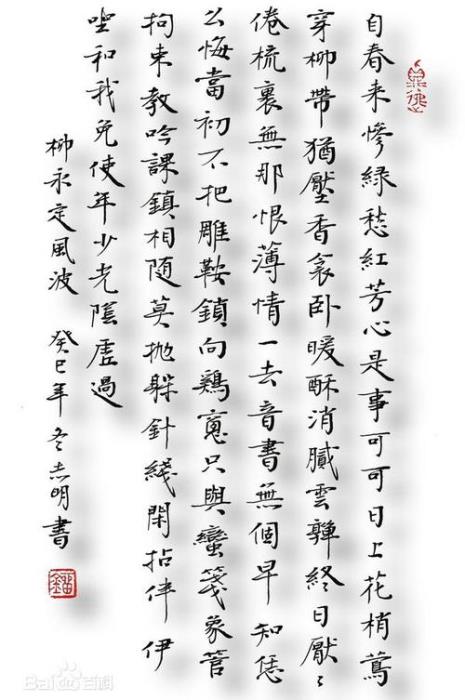 自春来慘緑愁紅芳心是事可可日上花梢鶯
穿柳帶猶壓香衾卧暖酥消膩雲嚲終日厭〻
倦梳裹無那恨薄情一去音書無個早知恁
么悔當初不把雕鞍鎖向鷄窗只與蠻箋象管
拘束教吟課鎮相随莫抛躲針綫閑拈伴伊
坐和我免使年少光陰虚過
柳永定風波 癸巳年冬志明書
Bai百科